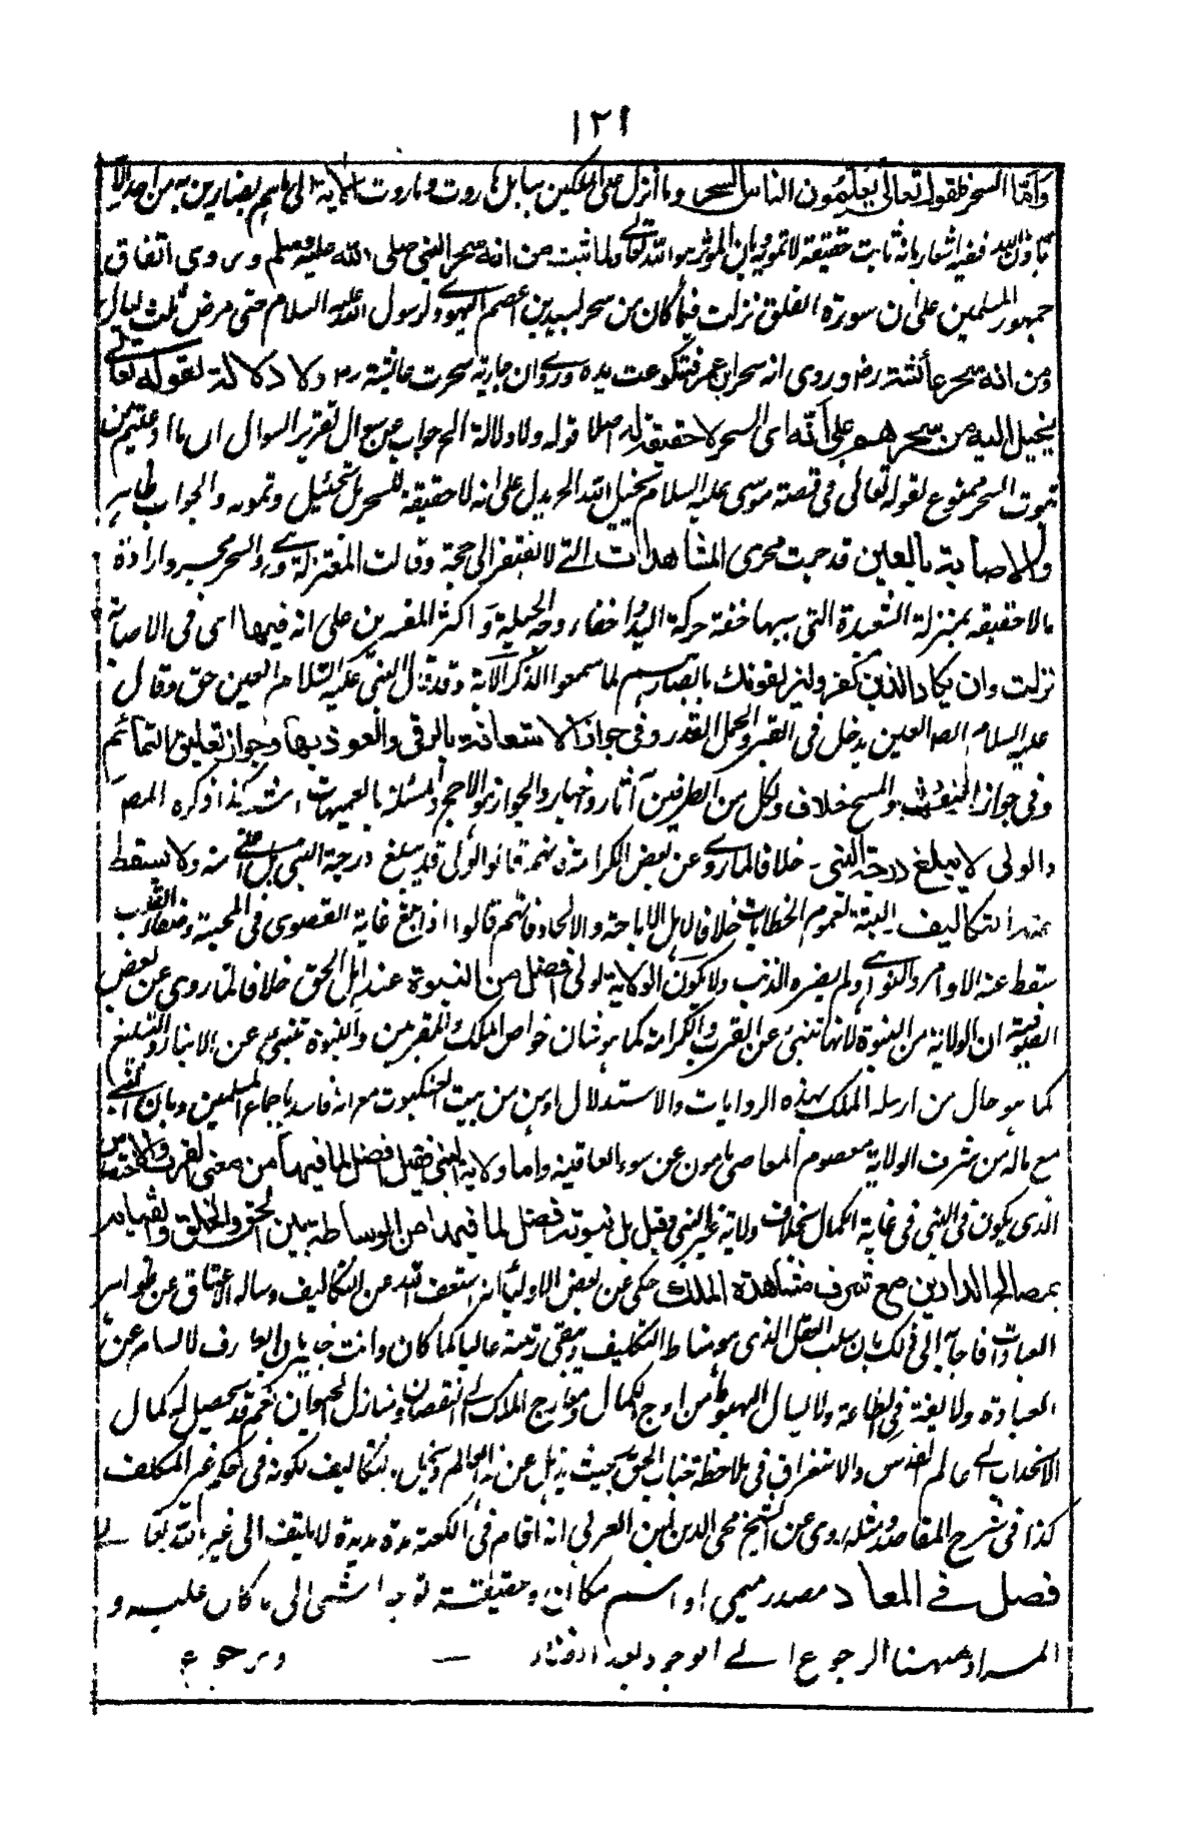 ١٢٩
وأما السحر فلقوله تعالى يعلمون الناس السحر وما أنزل على الملكين ببابل هاروت وماروت الآية الى وما هم بضارين به من احد الا
باذن الله ففيه اشعار بانه ثابت حقيقة لا تمويه وبان المؤثر هو الله تعالى ولما ثبت من انه سحر النبي صلى الله عليه وسلم وروى اتفاق
جمهور المسلمين على ان سورة الفلق نزلت فيما كان من سحر لبيد بن اعصم اليهودي لرسول الله عليه السلام حتى مرض ثلث ليال
ومن انه سحر عائشة رض وروى انه سحر ابن عمر فتكوعت يده وروى ان جارية سحرت عائشة رض ولا دلالة لقوله تعالى
يخيل اليه من سحرهم على أنه اى السحر لا حقيقة له اصلا قوله ولا دلالة الخ جواب عن سوال تقرير السوال ان ما ادعيتم من
ثبوت السحر ممنوع لقوله تعالى فى قصة موسى عليه السلام يخيل اليه الخ يدل على انه لا حقيقة للسحر بل تخئيل وتمويه والجواب ظاهر
والاصابة بالعين قد جرت مجرى المشاهدات التى لا تفتقر الى حجة وقالت المعتزلة السحر مجرد اراءة
ما لا حقيقة له بمنزلة الشعبذة التى سببها خفة حركة اليد او خفاء وجه الحيلة و اكثر المفسرين على انه فيها اى فى الاصابة
نزلت وان يكاد الذين كفروا ليزلقونك بابصارهم لما سمعوا الذكر الآية وقد قال النبى عليه السلام العين حق وقال
عليه السلام العين يدخل فى القبر والجمل القدر وفى جواز الاستعانة بالرقى والعوذ بها وجواز تعليق التمائم
وفى جواز النفث والمسح خلاف ولكل من الطرفين آثار واخبار والجواز هو الارجح والمسئلة بالفقهيات اشبه كذا ذكره المصـ
والولى لا يبلغ درجة النبى خلافا لما روى عن بعض الكرامية فانهم قالوا الولى قد يبلغ درجة النبى بل اعلى منه ولا يسقط
عنه التكاليف البتة لعموم الخطابات خلافا لاهل الاباحة والالحاد فانهم قالوا اذا بلغ غاية القصوى فى المحبة وصفاء القلب
سقط عنه الاوامر والنواهى ولم يضره الذنب ولا يكون الولاية اولى افضل من النبوة عند اهل الحق خلافا لما روى عن بعض
الصوفية ان الولاية من النبوة لانها تنبئ عن القرب والكرامة كما هو شان خواص الملك والمقربين والنبوة تنبئ عن الانباء والتبليغ
كما هو حال من ارسله الملك بهذه الروايات والاستدلال اوهن من بيت العنكبوت مع انه فاسد باجماع المسلمين وبان النبى
مع ماله من شرف الولاية معصوم المعاصى مامون عن سوء العاقبة واما ولاية النبى فقيل افضل لما فيها من معنى القرب والاختصاص
الذى يكون فى النبى فى غاية الكمال بخلاف ولاية غير النبى وقيل بل نبوته افضل لما فيها من الوساطة بين الحق والخلق والقيام
بمصالح الدارين مع شرف مشاهدة الملك حكى عن بعض الاولياء انه استعفى الله عن التكاليف وساله الاعتاق عن ظواهر
العبادات فاجابه الى ذلك بان سلب العقل الذى هو مناط التكليف وبقى رتبته عاليا كما كان وانت خبير بان العارف لا يسام عن
العبادة ولا يفتر فى الطاعة ولا يسال الهبوط من اوج الكمال ومعارج الملك الى النقصان ومنازل الحيوان نعم قد يحصل له كمال
الانجذاب الى عالم القدس والاستغراق فى ملاحظة جناب الحق بحيث يذهل عن هذا العالم ويخل بالتكاليف لكونه فى حكم غير المكلف
كذا فى شرح المقاصد ومثله روى عن الشيخ محى الدين بن العربى انه اقام فى الكعبة مدة مديدة لا يلتفت الى غير الله تعالى
فصل فى المعاد مصدر ميمى او اسم مكان وحقيقته توجه الشئ الى ما كان عليه و
المراد ههنا الرجوع الى الوجود بعد الفناء ورجوع